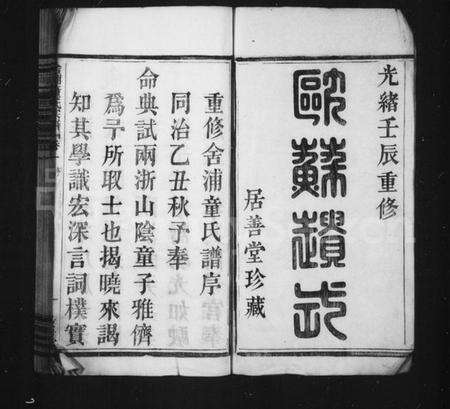 光緒壬辰重修
歐蘇趨步
居善堂珍藏
重修舍浦童氏譜序
同治乙丑秋予奉
命典試兩浙山陰童子雅儕
爲予所取士也揭曉來謁
知其學識宏深言詞樸實